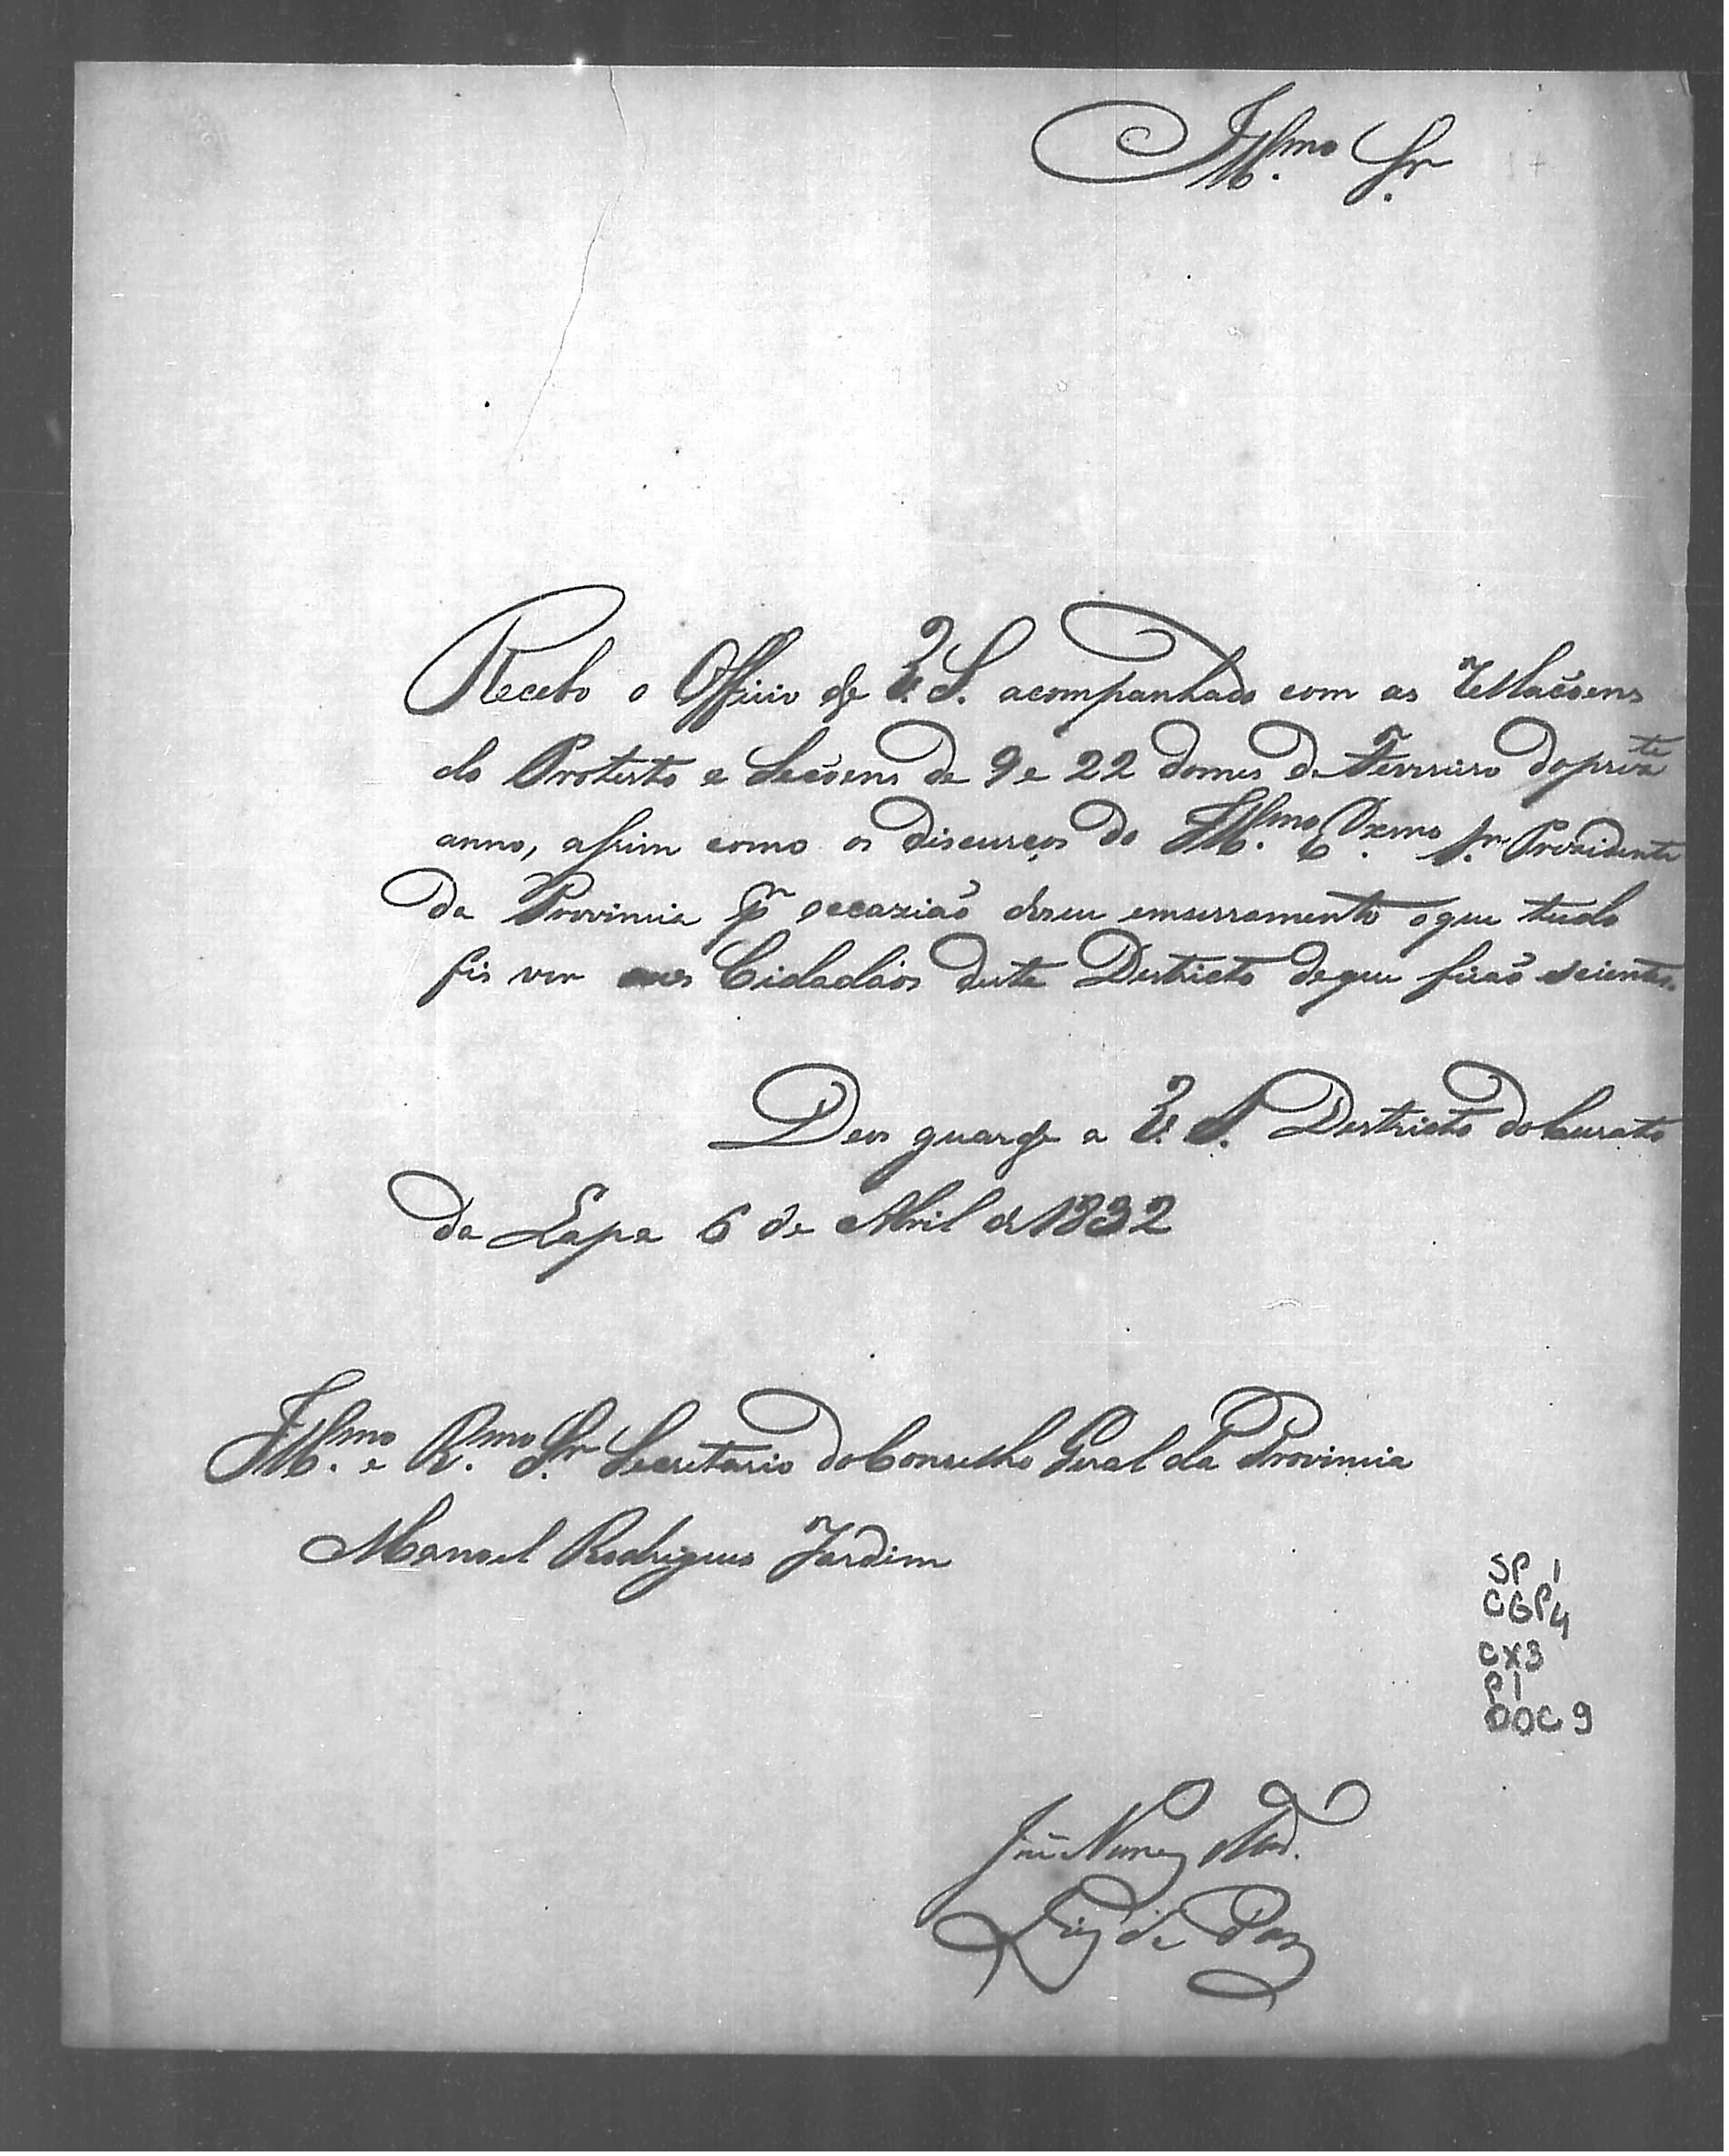 Illmo Sr.
Recebo o Officio de V. S. acompanhado com as rellaçoens
do Protesto e Secoens de 9 e 22 domes de Fevereiro dopreze
anno, assim como os discurços do Illmo. Exmo. Sr. Prezidente
da Provincia pr occazião deseu emserramento oque tudo
fis ver aos Cidadãos deste Destricto deque ficão scientes.
Deos guarde a V. S. Destricto doCurato
da Lapa 6 de Abril de 1832
Illmo. e R.mo Sr. Secretario doConselho Geral da Provincia
Manoel Rodrigues Jardim
SP 1
CGP4
CX3
P1
DOC 9
Nunes
Juiz de Paz